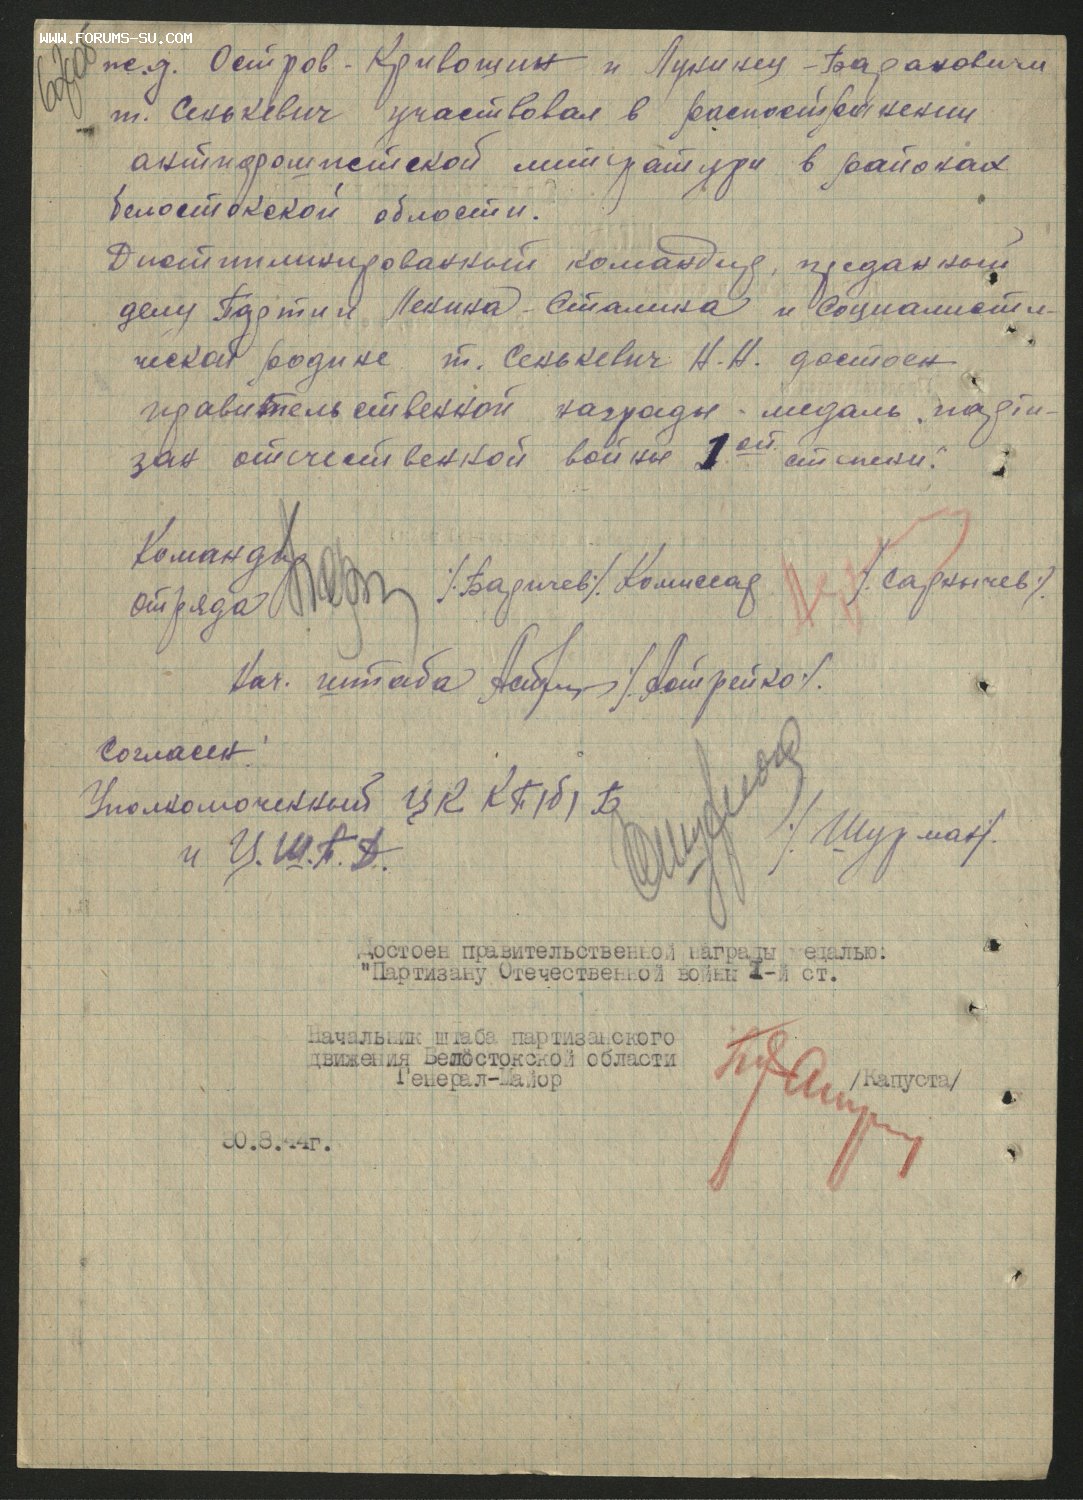 WWW.FORUMS-SU.COM
ж.д. Остров - Кривошин и Лунинец - Барановичи
т. Сенькевич участвовал в распостранении
антифашистской литературы в районах
белостокской области.
Дисциплинированный командир, преданный
делу Партии Ленина - Сталина и Социалисти-
ческой родине т. Сенькевич Н.Н. достоен
правительственной награды - медаль "парти-
зан отечественной войны 1ой степени".
Командир
отряда /Баричев/. Комиссар /Сарычев/.
Нач. штаба /Астрейко/.
Согласен!
Уполномоченный ЦК КП(б)Б
и Ц.Ш.П.Д. /Шурман/.
Достоен правительственной награды медалью:
"Партизану Отечественной войны I-й ст.
Начальник штаба партизанского
движения Белостокской области
Генерал-Майор /Капуста/
30.8.44г.